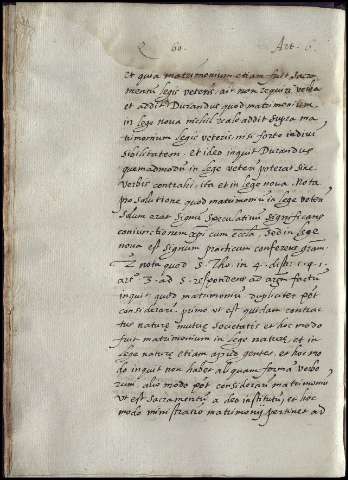 Q 60. Art. 6.
et quia matrimonium etiam fuit sacra
mentū legis veteris, ait non requiri verba
et addit Durandus quod matrimonium
in lege nova nichil reale addit supra ma
trimonium legis veteris, nisi forte indivi
sibilitatem. et ideo inquit Durandus
quemadmodū in lege veterj poterat sine
verbis contrahi, ita et in lege nova. Nota
pro solutione quod matrimoniū in lege veterj
solum erat signū speculativū significans
coniunctionem xp̄i cum eccl̄a. sed in lege
nova est signum practicum conferens gram̄.
nota quod S. Tho. in 4. dist. q. 1.
ar. 3. ad 5. respondens ad argū factū
inquit quod matrimoniū dupliciter pōt
considerari. primo ut est quidam contrac
tus naturę mutuę societatis et hoc modo
fuit matrimonium in lege naturę, et in
lege naturę etiam apud gentes. et hoc mo
do inquit non habet aliquam formā verbo
rum. alio modo pōt considerari matrimoniū
ut est sacramentū a deo institutū, et hoc
modo ministratio matrimonij pertinet ad